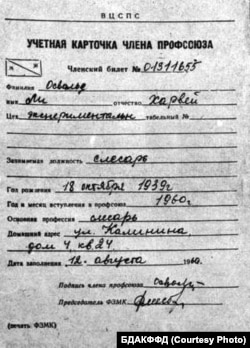 ВЦСПС
УЧЕТНАЯ КАРТОЧКА ЧЛЕНА ПРОФСОЮЗА
Членский билет № 01311655
Фамилия Освальд
имя Ли отчество Харвей
Цех экспериментальн табельный №
Занимаемая должность слесарь
Год рождения 18 октября 1939г
Год и месяц вступления в профсоюз 1960г.
Основная профессия слесарь
Домашний адрес ул. Калинина
дом 4, кв. 24.
Дата заполнения 12. августа 1960.
Подпись члена профсоюза
Председатель ФЗМК
(печать ФЗМК)
БДАКФФД (Courtesy Photo)